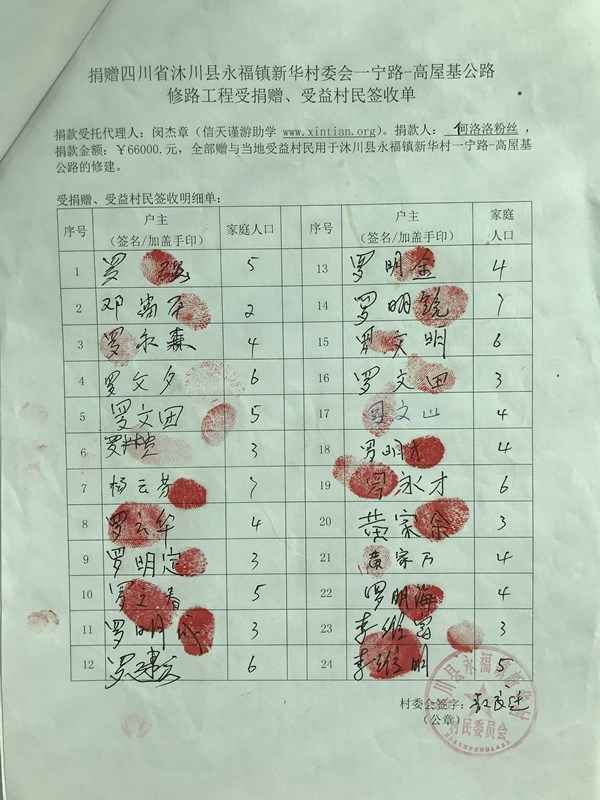 捐赠四川省沐川县永福镇新华村委会一宁路-高屋基公路
修路工程受捐赠、受益村民签收单
捐款受托代理人：闵杰章（信天谨游助学 www.xintian.org)。捐款人： 何洛洛粉丝，
捐款金额：￥66000.元，全部赠与当地受益村民用于沐川县永福镇新华村一宁路-高屋基
公路的修建。
受捐赠、受益村民签收明细单：
序号 户主 家庭人口 序号 户主 家庭
（签名/加盖手印） （签名/加盖手印） 人口
1 罗 5 13 罗明金 4
2 邓 2 14 罗明 7
3 罗永森 4 15 罗文明 6
4 罗文夕 6 16 罗文田 3
5 罗文团 5 17 文山 4
6 罗 3 18 罗明才 4
7 杨云芬 7 19 永才 6
8 罗云华 4 20 黄家余 3
9 罗明定 3 21 黄家万 4
10 罗春 5 22 罗明海 4
11 罗明成 3 23 李维富 3
12 6 24 李维明 5
村委会签字：
（公章）
川县永福镇新华村
村民委员会